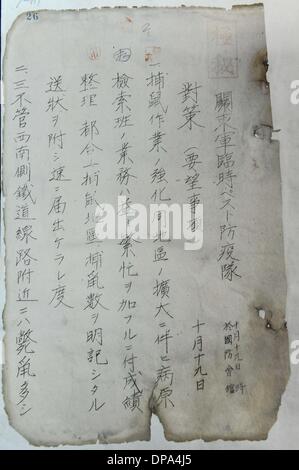 26
極秘
關東軍臨時ペスト防疫隊
十月十九日 時
於國防會館
對策(要望事項
十月十九日
一、捕鼠作業ノ強化同地區ノ擴大ニ伴ヒ病原
檢索班ノ業務ハ益々繁忙ヲ加フルニ付成績
整理ノ都合上捕鼠地區捕鼠數ヲ明記シタル
送狀ヲ附シ速ニ届出ケラレ度
二、三不管西南側鐵道線路附近ニハ斃鼠多シ
alamy
DPA4J5